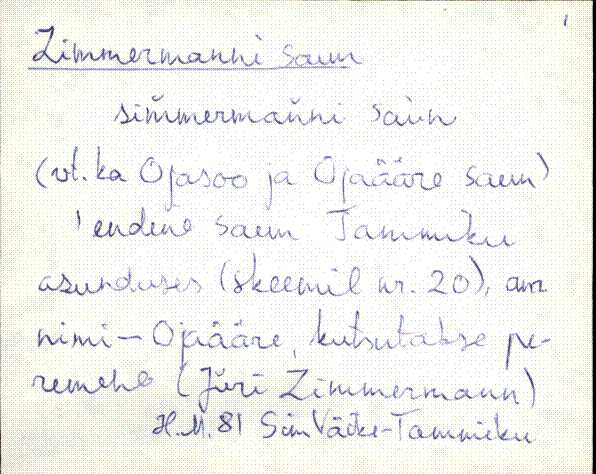 1
Zimmermanni saun
sim̆mermañni saùn
(vt. ka Ojasoo ja Ojaääre saun)
'endine saun Tammiku
asunduses (skeemil nr. 20), am.
nimi – Ojaääre, kutsutakse pe-
remehe (Jüri Zimmermann)
H.M. 81 Sim Väike-Tammiku